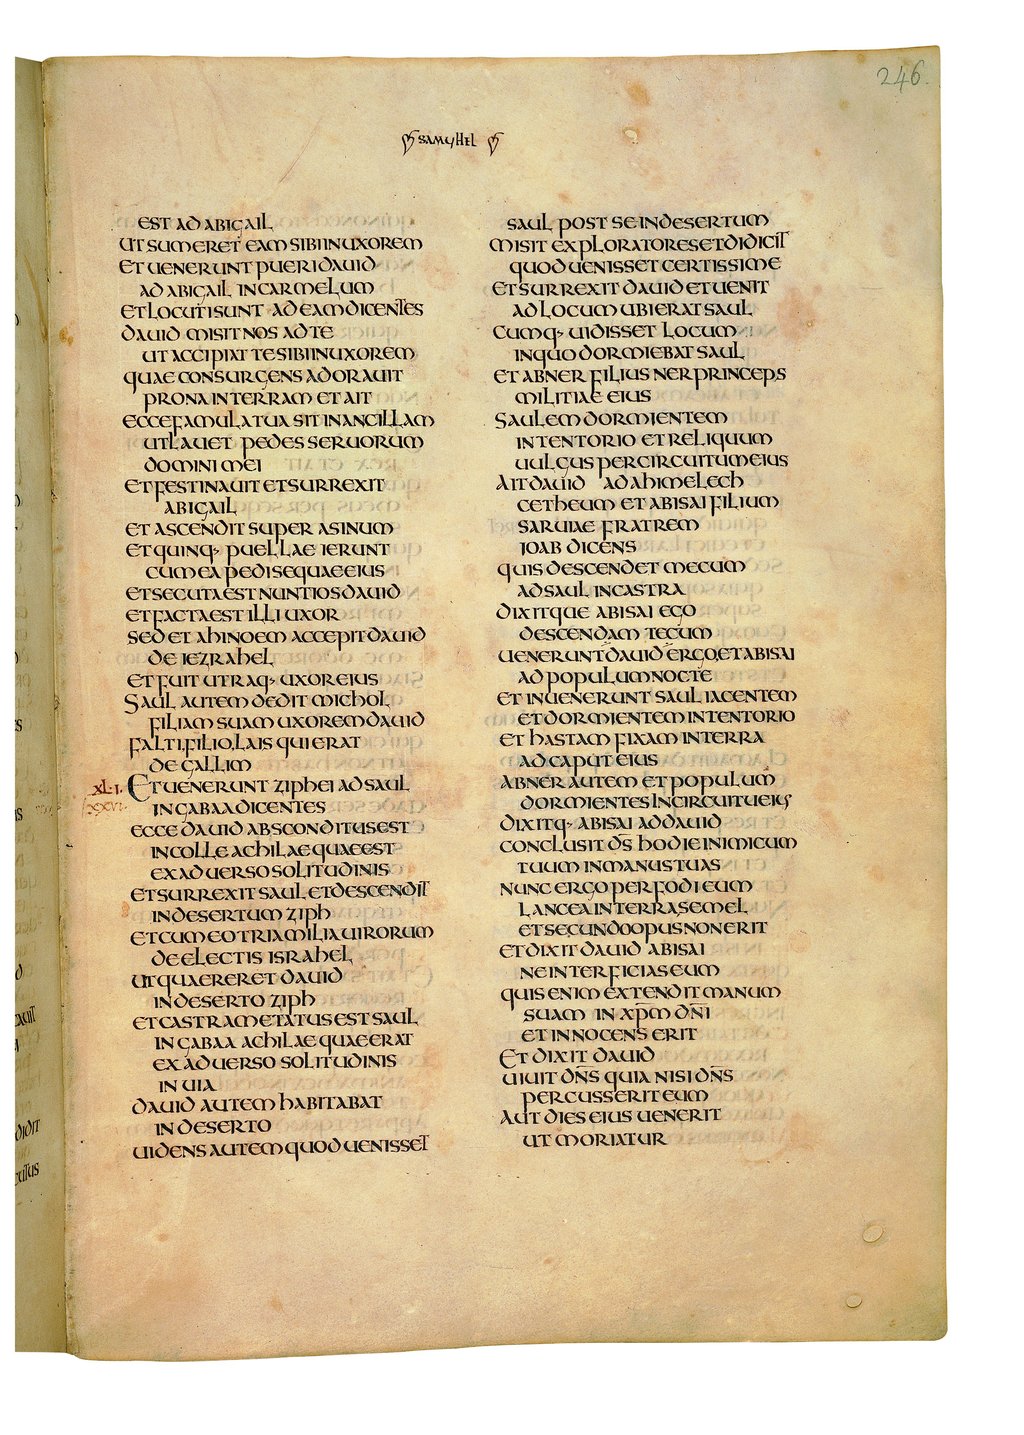 246.
SAMUHEL
EST AD ABIGAIL
UT SUMERET EAM SIBI IN UXOREM
ET UENERUNT PUERI DAUID
AD ABIGAIL IN CARMELUM
ET LOCUTI SUNT AD EAM DICENTES
DAUID MISIT NOS AD TE
UT ACCIPIAT TE SIBI IN UXOREM
QUAE CONSURGENS ADORAUIT
PRONA IN TERRAM ET AIT
ECCE FAMULA TUA SIT IN ANCILLAM
UT LAUET PEDES SERUORUM
DOMINI MEI
ET FESTINAUIT ET SURREXIT
ABIGAIL
ET ASCENDIT SUPER ASINUM
ET QUINQ· PUELLAE IERUNT
CUM EA PEDISEQUAE EIUS
ET SECUTA EST NUNTIOS DAUID
ET FACTA EST ILLI UXOR
SED ET AHINOEM ACCEPIT DAUID
DE IEZRAHEL
ET FUIT UTRAQ· UXOR EIUS
SAUL AUTEM DEDIT MICHOL
FILIAM SUAM UXOREM DAUID
FALTI, FILIO, LAIS QUI ERAT
DE GALLIM
XL·I. ET UENERUNT ZIPHEI AD SAUL
IN GABAA DICENTES
ECCE DAUID ABSCONDITUS EST
IN COLLE ACHILAE QUAE EST
EX ADUERSO SOLITUDINIS
ET SURREXIT SAUL ET DESCENDIT
IN DESERTUM ZIPH
ET CUM EO TRIA MILIA UIRORUM
DE ELECTIS ISRAHEL
UT QUAERERET DAUID
IN DESERTO ZIPH
ET CASTRAMETATUS EST SAUL
IN GABAA ACHILAE QUAE ERAT
EX ADUERSO SOLITUDINIS
IN UIA
DAUID AUTEM HABITABAT
IN DESERTO
UIDENS AUTEM QUOD UENISSET
SAUL POST SE IN DESERTUM
MISIT EXPLORATORES ET DIDICIT
QUOD UENISSET CERTISSIME
ET SURREXIT DAUID ET UENIT
AD LOCUM UBI ERAT SAUL
CUMQ· UIDISSET LOCUM
IN QUO DORMIEBAT SAUL
ET ABNER FILIUS NER PRINCEPS
MILITIAE EIUS
SAULEM DORMIENTEM
IN TENTORIO ET RELIQUUM
UULGUS PER CIRCUITUM EIUS
AIT DAUID AD AHIMELECH
CETHEUM ET ABISAI FILIUM
SARUIAE FRATREM
IOAB DICENS
QUIS DESCENDET MECUM
AD SAUL IN CASTRA
DIXITQUE ABISAI EGO
DESCENDAM TECUM
UENERUNT DAUID ERGO, ET ABISAI
AD POPULUM NOCTE
ET INUENERUNT SAUL IACENTEM
ET DORMIENTEM IN TENTORIO
ET HASTAM FIXAM IN TERRA
AD CAPUT EIUS
ABNER AUTEM ET POPULUM
DORMIENTES IN CIRCUITU EIUS
DIXITQ· ABISAI AD DAUID
CONCLUSIT D̅S̅ HODIE INIMICUM
TUUM IN MANUS TUAS
NUNC ERGO PERFODI EUM
LANCEA IN TERRA, SEMEL
ET SECUNDO OPUS NON ERIT
ET DIXIT DAUID ABISAI
NE INTERFICIAS EUM
QUIS ENIM EXTENDIT MANUM
SUAM IN X̅P̅M̅ D̅N̅I̅
ET INNOCENS ERIT
ET DIXIT DAUID
UIUIT D̅N̅S̅ QUIA NISI D̅N̅S̅
PERCUSSERIT EUM
AUT DIES EIUS UENERIT
UT MORIATUR